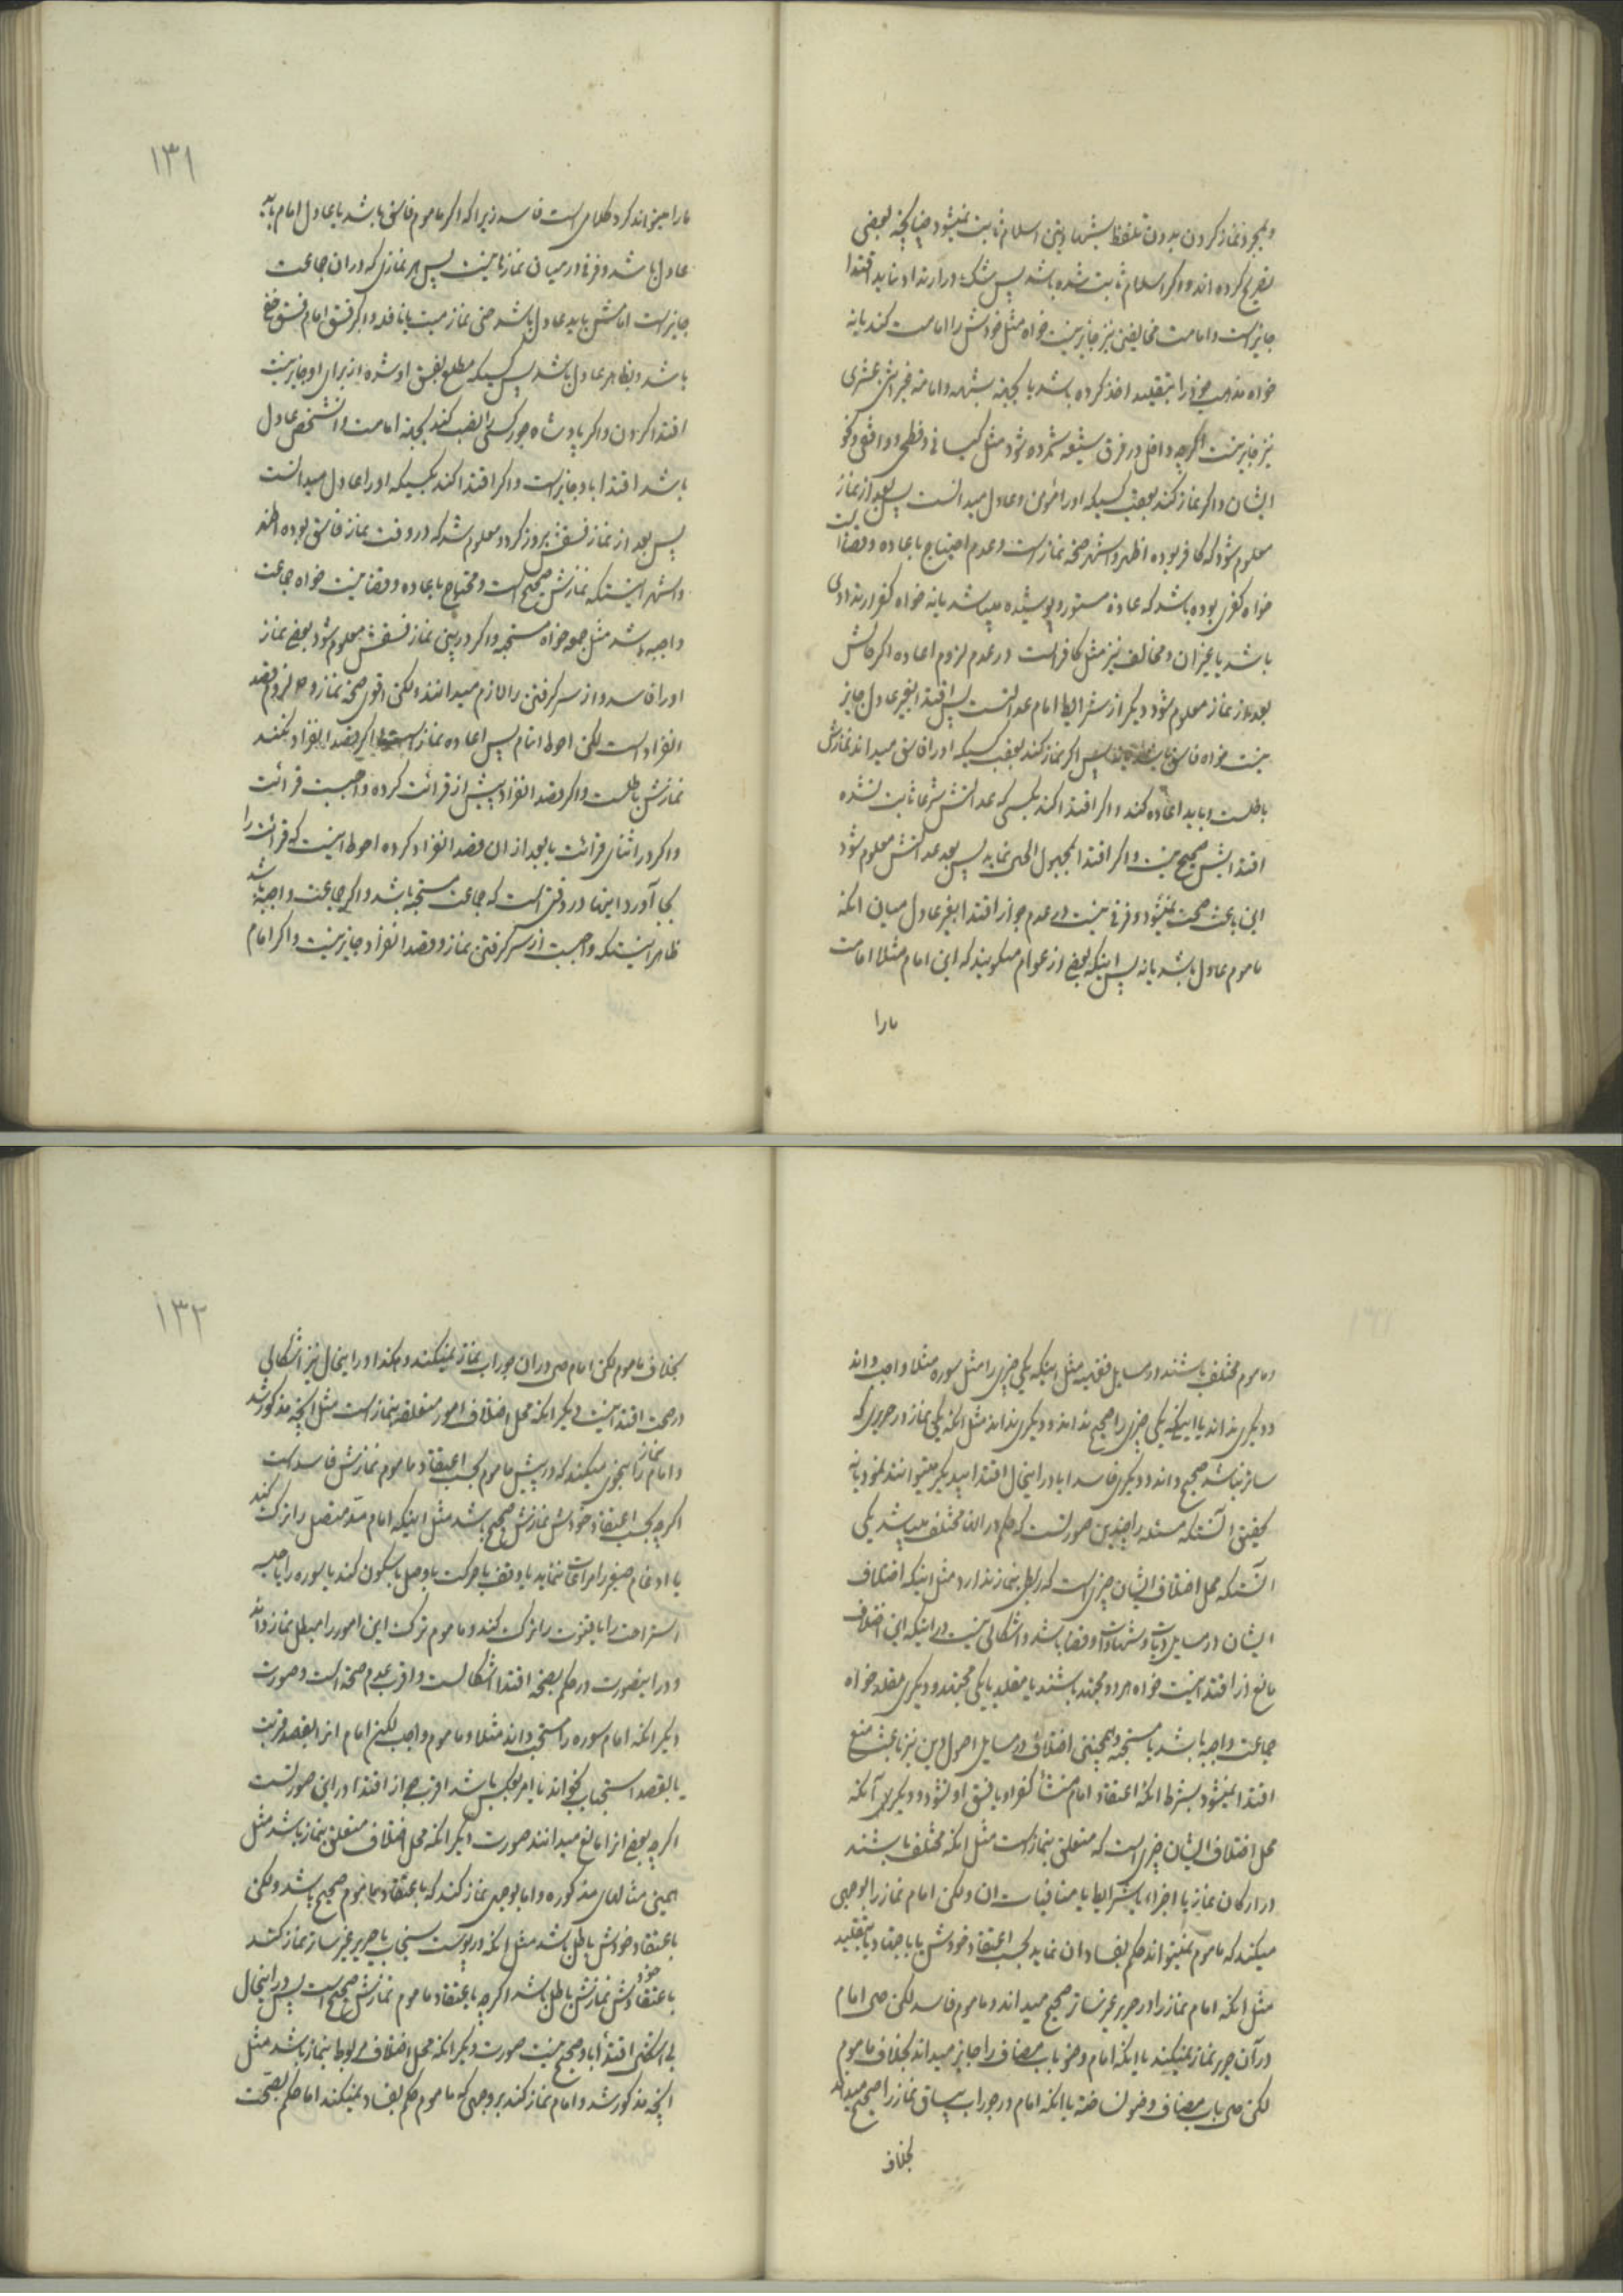 و بمجرد نماز کردن بدون تلفظ بشهادتین اسلام ثابت نمیشود چنانچه بعضی
تصریح کرده اند و اگر اسلام ثابت شده باشد پس شک در ارتداد نباید اقتدا
جایز است و امامت مخالفین نیز جایز نیست خواه مثل خودش را امامت کند یا نه
خواه مذهب خود را بتقلید اخذ کرده باشد یا بجهة شبهه و امامة غیر اثنی عشری
نیز جایز نیست اگرچه داخل در فرق شیعه شمرده شود مثل کیسانی و فطحی و واقفی و نحو
ایشان و اگر نماز کند بعقب کسیکه او را مؤمن و عادل میدانست پس بعد از نماز
معلوم شود که کافر بوده اظهر و اشهر صحة نماز است و عدم احتیاج باعاده و قضا است
خواه کفری بوده باشد که عادة مستور و پوشیده میباشد یا نه خواه کفر ارتدادی
باشد یا غیر ان و مخالف نیز مثل کافر است در عدم لزوم اعاده اگر حالش
بعد از نماز معلوم شود دیگر از شرایط امام عدالت است پس اقتدا بغیر عادل جایز
نیست خواه فاسق پس اگر نماز کند بعقب کسیکه او را فاسق میداند نمازش
باطلست و باید اعاده کند و اگر اقتدا کند بکسی که عدالتش شرعا ثابت نشده
اقتدایش صحیح نیست و اگر اقتدا بمجهول الحال نماید پس بعد عدالتش معلوم شود
این باعث صحت نمیشود و فرقی نیست در عدم جواز اقتدا بغیر عادل میان انکه
ماموم عادل باشد یا نه پس اینکه بعضی از عوام میگویند که این امام مثلا امامت
مارا
۱۳۱
مارا میتواند کرد کلامی است فاسد زیرا که اگر ماموم فاسق باشد یا عادل امام باید
عادل باشد و فرقی در میان نمازها نیست پس هر نمازی که در ان جماعت
جایز است امامش باید عادل باشد حتی نماز میت یا نافله و اگر فسق امام فسق خفی
باشد و بظاهر عادل باشد پس کسیکه مطلع بفسق او شده از برای او جایز نیست
اقتدا کردن و اگر پادشاه جور کسی را نصب کند بجهة امامت و انشخص عادل
باشد اقتدا باو جایز است و اگر اقتدا کند بکسیکه او را عادل میدانست
پس بعد از نماز فسقش بروز کرد و معلوم شد که در وقت نماز فاسق بوده اظهر
و اشهر اینستکه نمازش صحیح است و محتاج باعاده و قضا نیست خواه جماعت
واجبه باشد مثل جمعه خواه مستحبه و اگر در بین نماز فسقش معلوم شود بعضی نماز
او را فاسد و از سر گرفتن را لازم میدانند و لکن اقوی صحة نماز و لزوم قصد
انفراد است لکن احوط اتمام پس اعاده نماز است اگر قصد انفراد نکند
نمازش باطلست و اگر قصد انفراد پیش از قرائت کرده واجبست قرائت
و اگر در اثنای قرائت یا بعد از ان قصد انفراد کرده احوط اینست که قرائت را
بجا آورد اینها در وقتی است که جماعت مستحبه باشد و اگر جماعت واجبه باشد
ظاهر اینستکه واجبست از سر گرفتن نماز و قصد انفراد جایز نیست و اگر امام
و ماموم مختلف باشند در مسایل فقهیه مثل اینکه یکی چیزی را مثل سوره مثلا واجب داند
و دیگری نداند یا اینکه یکی چیزی را صحیح بداند و دیگری نداند مثل انکه یکی نماز در حریری که
ساتر نباشد صحیح داند و دیگری فاسد ایا در اینحال اقتدا بیکدیگر میتوانند نمود یا نه
تحقیق انستکه مسئله را چندین صورتست که حکم در انها مختلف میباشد یکی
انستکه محل اختلاف ایشان چیزی است که ربطی بنماز ندارد مثل اینکه اختلاف
ایشان در مسایل دیات و شهادات و قضا باشد و اشکالی نیست در اینکه این اختلاف
مانع از اقتدا نیست خواه هر دو مجتهد باشند یا مقلد یا یکی مجتهد و دیگری مقلد خواه
جماعت واجبه باشد یا مستحبه و همچنین اختلاف در مسایل اصول دین نیز باعث منع
اقتدا نمیشود بشرط انکه اعتقاد امام منشأ کفر او یا فسق او نشود و دیگری آنکه
محل اختلاف ایشان چیزی است که متعلق بنماز است مثل انکه مختلف باشند
در ارکان نماز یا اجزاء یا شرایط یا منافیات ان و لکن امام نماز را بوجهی
میکند که ماموم نمیتواند حکم بفساد ان نماید بحسب اعتقاد خودش یا باجتهاد یا بتقلید
مثل انکه امام نماز را در حریر غیر ساتر صحیح میداند و ماموم فاسد لکن حین امام
در آن حریر نماز نمیکند یا انکه امام وضو باب مضاف را جایز میداند بخلاف ماموم
لکن حین باب مضاف وضو نساخته یا انکه امام در جوراب بیساق نماز را صحیح میداند
بخلاف
۱۳۲
بخلاف ماموم لکن امام حین در ان جوراب نماز نمیکند و هکذا و در اینحال نیز اشکالی
در صحت اقتدا نیست دیگر انکه محل اختلاف امور متعلقه بنماز است مثل انچه مذکور شد
و امام نماز را بنحوی میکند که در پیش ماموم بحسب اعتقاد ماموم نمازش فاسد است
اگرچه بحسب اعتقاد خودش نمازش صحیح باشد مثل اینکه امام مد متصل را ترک کند
یا ادغام صغیر را مراعات ننماید یا وقف بحرکت یا وصل بسکون کند یا سوره را یا جلسه
استراحت را یا قنوت را ترک کند و ماموم ترک این امور را مبطل نماز داند
و در اینصورت در حکم بصحة اقتدا اشکالست و اقرب عدم صحة است و صورت
دیگر انکه امام سوره را مستحب داند مثلا و ماموم واجب لیکن امام انرا بقصد قربت
یا بقصد استحباب بخواند یا امر بعکس باشد اقرب جواز اقتدا در این صورتست
اگرچه بعضی انرا مانع میدانند صورت دیگر انکه محل اختلاف متعلق بنماز باشد مثل
همین مثالهای مذکوره و اما بوجهی نماز کند که باعتقاد ماموم صحیح باشد و لکن
باعتقاد خودش باطل باشد مثل انکه در پوست سنجاب یا حریر غیر ساتر نماز کند
باعتقاد خودش نمازش باطل باشد اگرچه باعتقاد ماموم نمازش صحیح است پس در اینحال
بی اشکال اقتدا باو صحیح نیست صورت دیگر انکه محل اختلاف مربوط بنماز باشد مثل
انچه مذکور شد و امام نماز کند بر وجهی که ماموم حکم بفساد نمیکند اما حکم بصحت